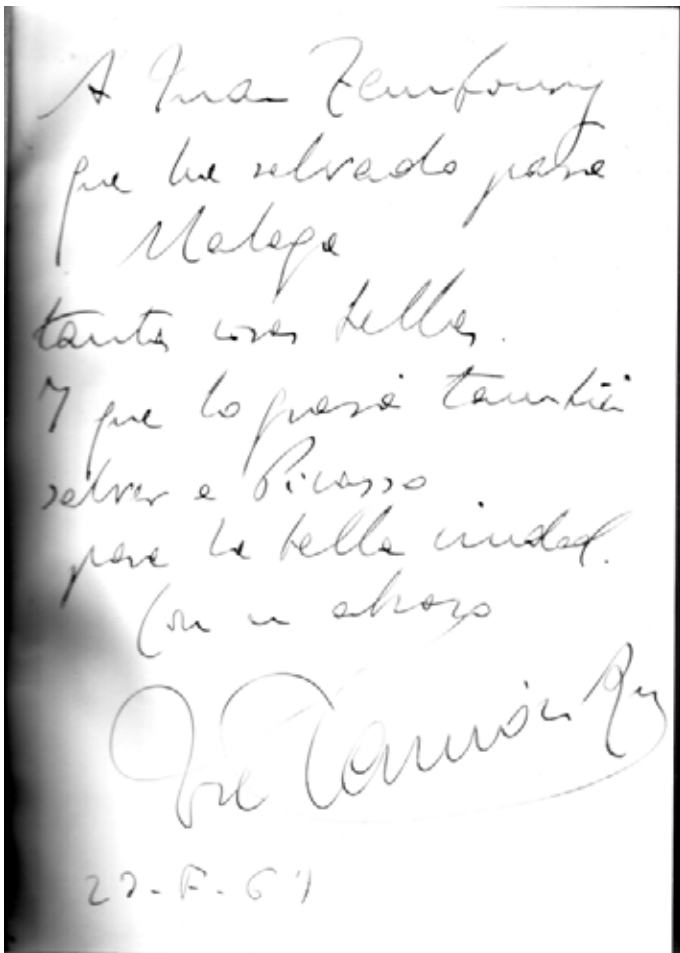 A Juan Temboury
que ha salvado para
Malaga
tantas cosas bellas.
Y que lo
también
salvar a Picasso
para la bella ciudad.
Con un abrazo
José